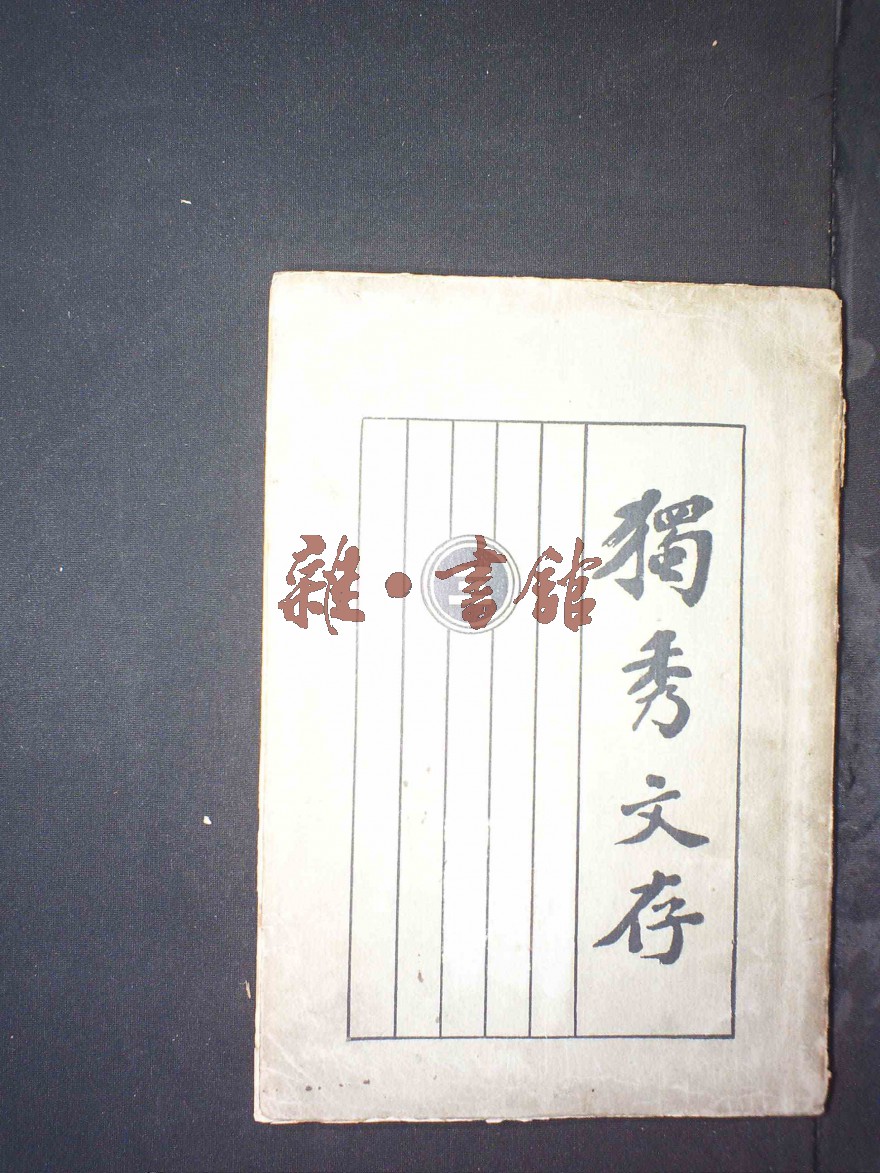 獨秀文存
雜·書館